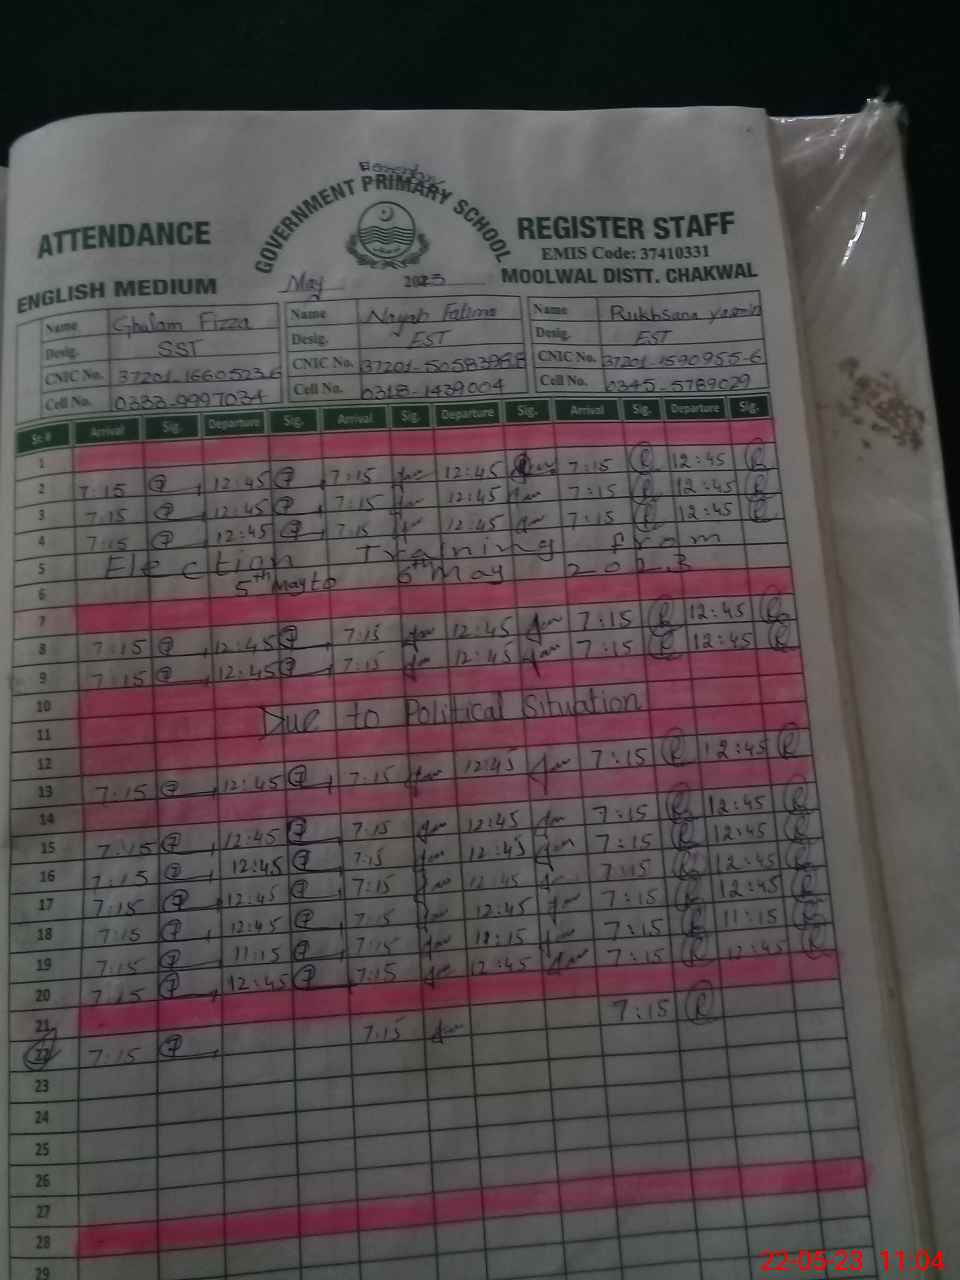 Elementary
GOVERNMENT PRIMARY SCHOOL
ATTENDANCE REGISTER STAFF
EMIS Code: 37410331
ENGLISH MEDIUM May 2023 MOOLWAL DISTT. CHAKWAL
Name Ghulam Fizza Name Nayab Fatima Name Rukhsana yasmin
Desig. SST Desig. EST Desig. EST
CNIC No. 37201-1660523-6 CNIC No. 37201-5058398-8 CNIC No. 37201-1590955-6
Cell No. 0333-9997034 Cell No. 0318-1439004 Cell No. 0345-5789029
Sr.# Arrival Sig. Departure Sig. Arrival Sig. Departure Sig. Arrival Sig. Departure Sig.
1
2 7:15 12:45 7:15 12:45 7:15 R 12:45 R
3 7:15 12:45 7:15 12:45 7:15 R 12:45 R
4 7:15 12:45 7:15 12:45 7:15 R 12:45 R
5 Election Training from
6 5th May to 6th May 2023
7
8 7:15 12:45 7:15 12:45 7:15 R 12:45 R
9 7:15 12:45 7:15 12:45 7:15 R 12:45 R
10
11 Due to Political Situation
12
13 7:15 12:45 7:15 12:45 7:15 R 12:45 R
14
15 7:15 12:45 7:15 12:45 7:15 R 12:45 R
16 7:15 12:45 7:15 12:45 7:15 R 12:45 R
17 7:15 12:45 7:15 12:45 7:15 R 12:45 R
18 7:15 12:45 7:15 12:45 7:15 R 12:45 R
19 7:15 11:15 7:15 11:15 7:15 R 11:15 R
20 7:15 12:45 7:15 12:45 7:15 R 12:45 R
21
22 7:15 7:15 7:15 R
23
24
25
26
27
28
29
22-05-23 11:04